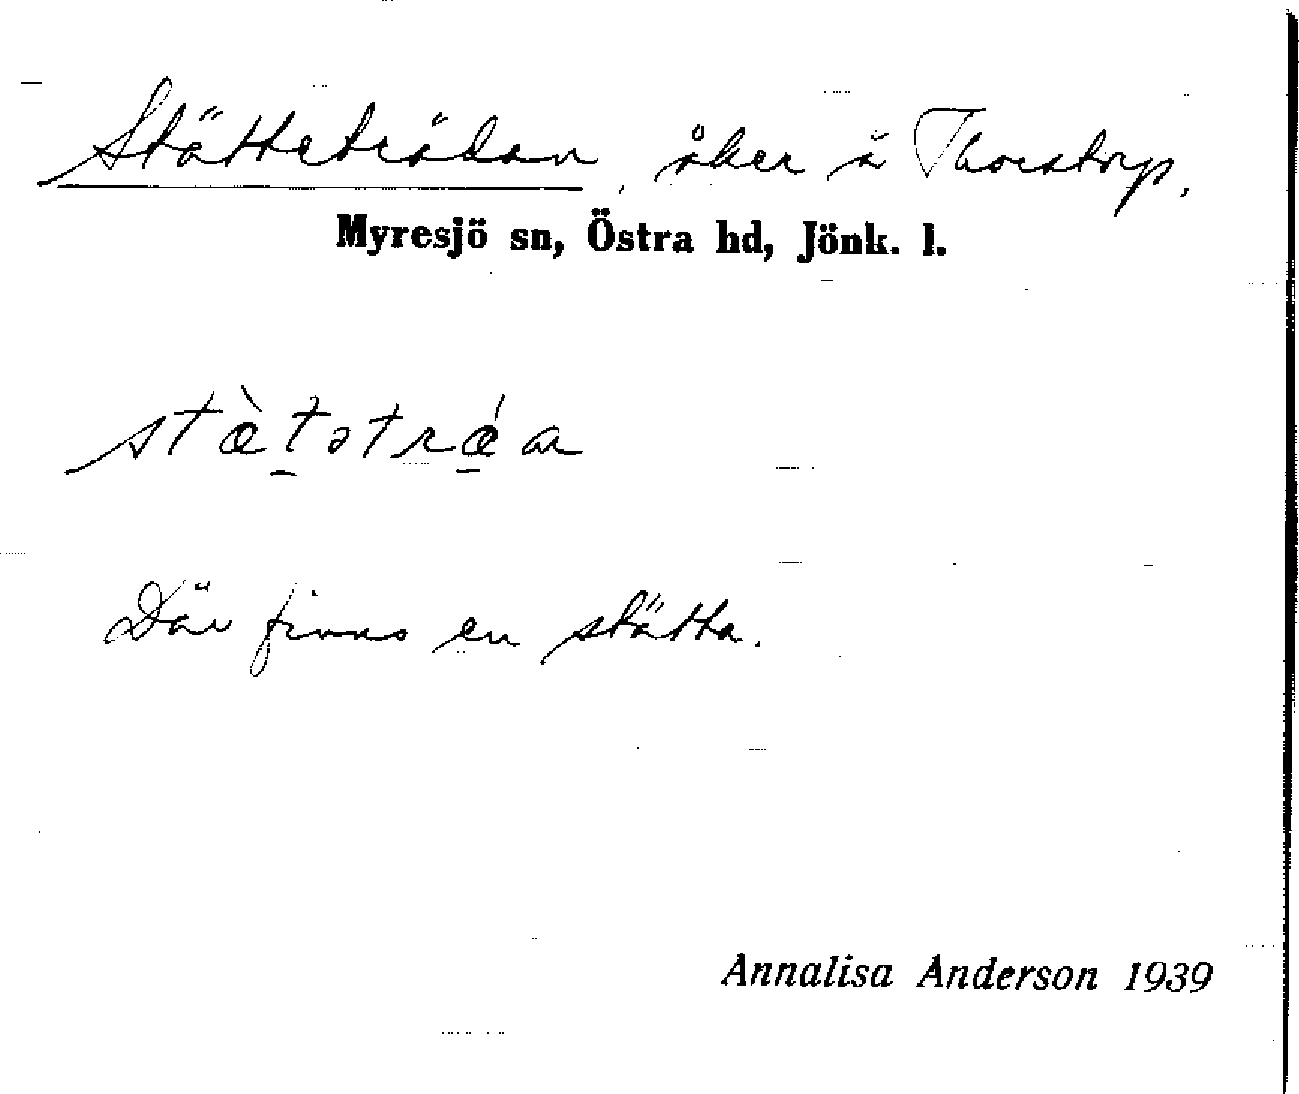 Stätteträdan, åker å Thorstorp.
Myresjö sn, Östra hd, Jönk. l.
stæ̀t̠ətrǽ̠a
Där finns en stätta.
Annalisa Anderson 1939